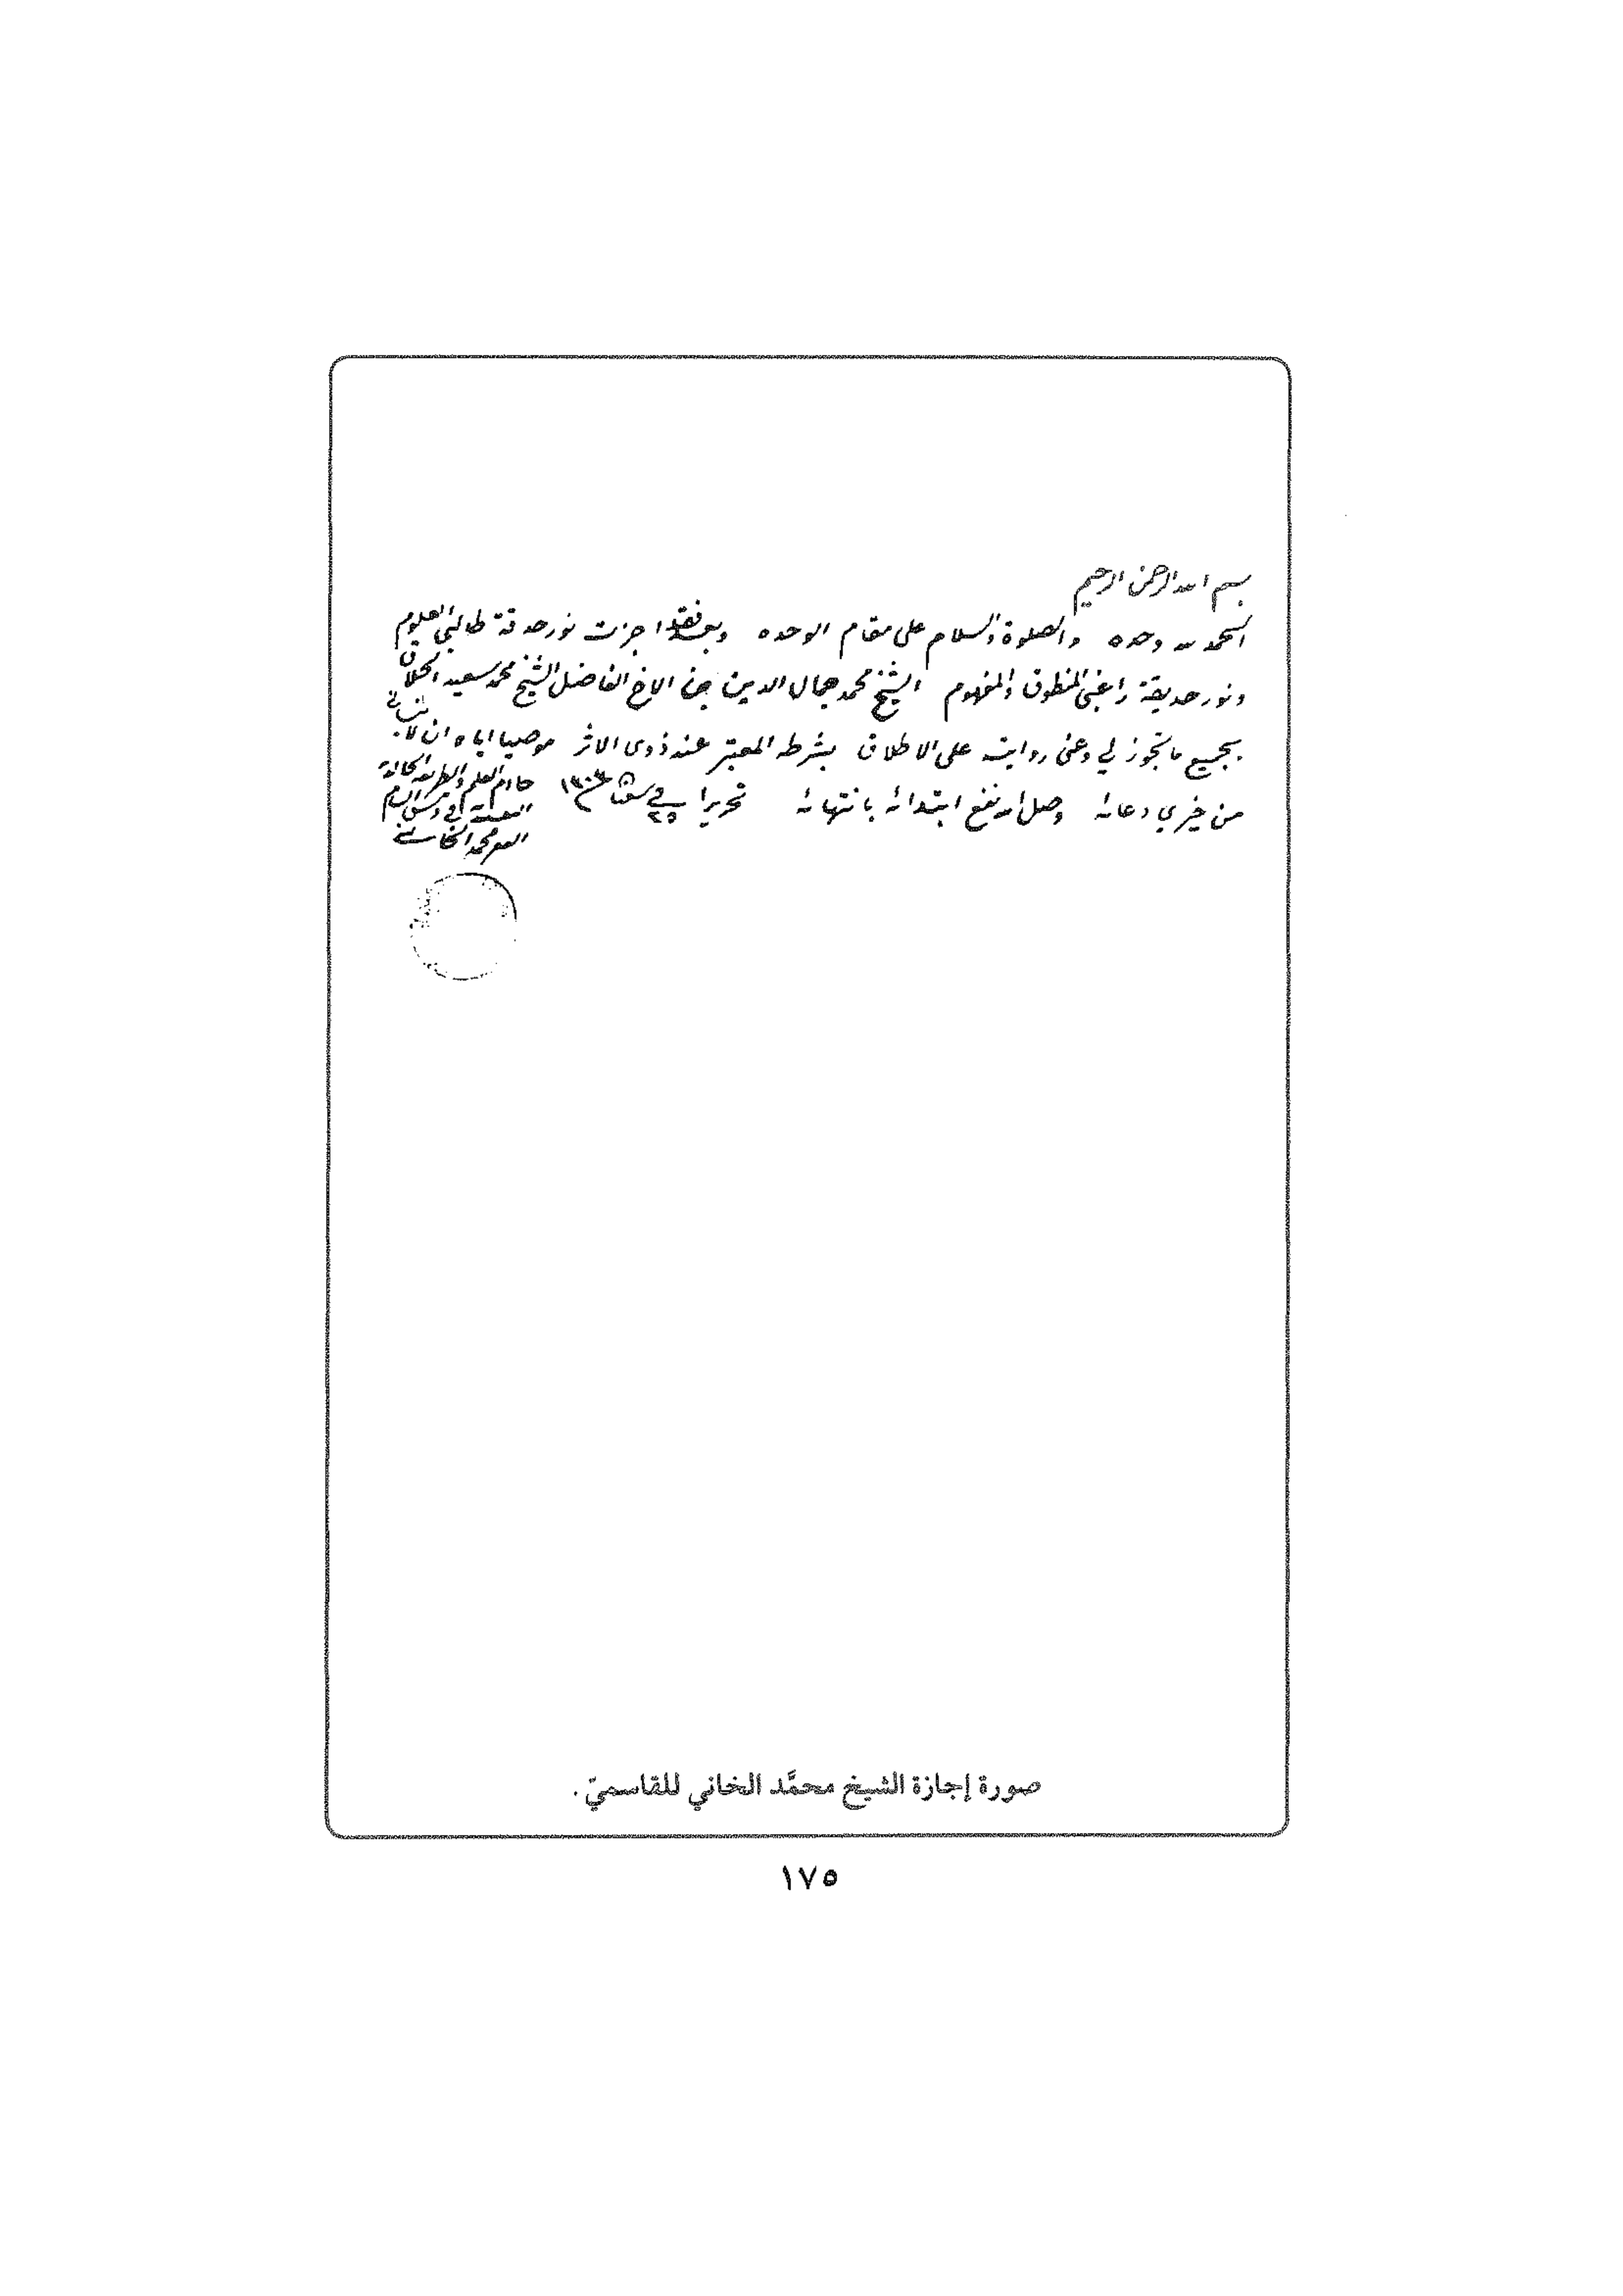 بسم الله الرحمن الرحيم
الحمد لله وحده والصلوة والسلام على مقام الوحده وبعد فقد اجزت نور حدقة طالبي العلوم
ونور حديقة راغبي المنطوق والمفهوم الشيخ محمد جمال الدين بن الاخ الفاضل الشيخ محمد سعيد الحلاق
بجميع ما تجوز لي وعني روايته على الاطلاق بشرطه المعتبر عند ذوى الاثر موصيا اياه ان لا ينساني
من خيري دعائه وصل الله نفع ابتدائه بانتهائه تحريرا في ٢٥ سنة ١٣٠٣
خادم العلم والطريقة الخالدية
النقشبندية في دمشق الشام
محمد الخاني
صورة إجازة الشيخ محمَّد الخاني للقاسميّ.
١٧٥